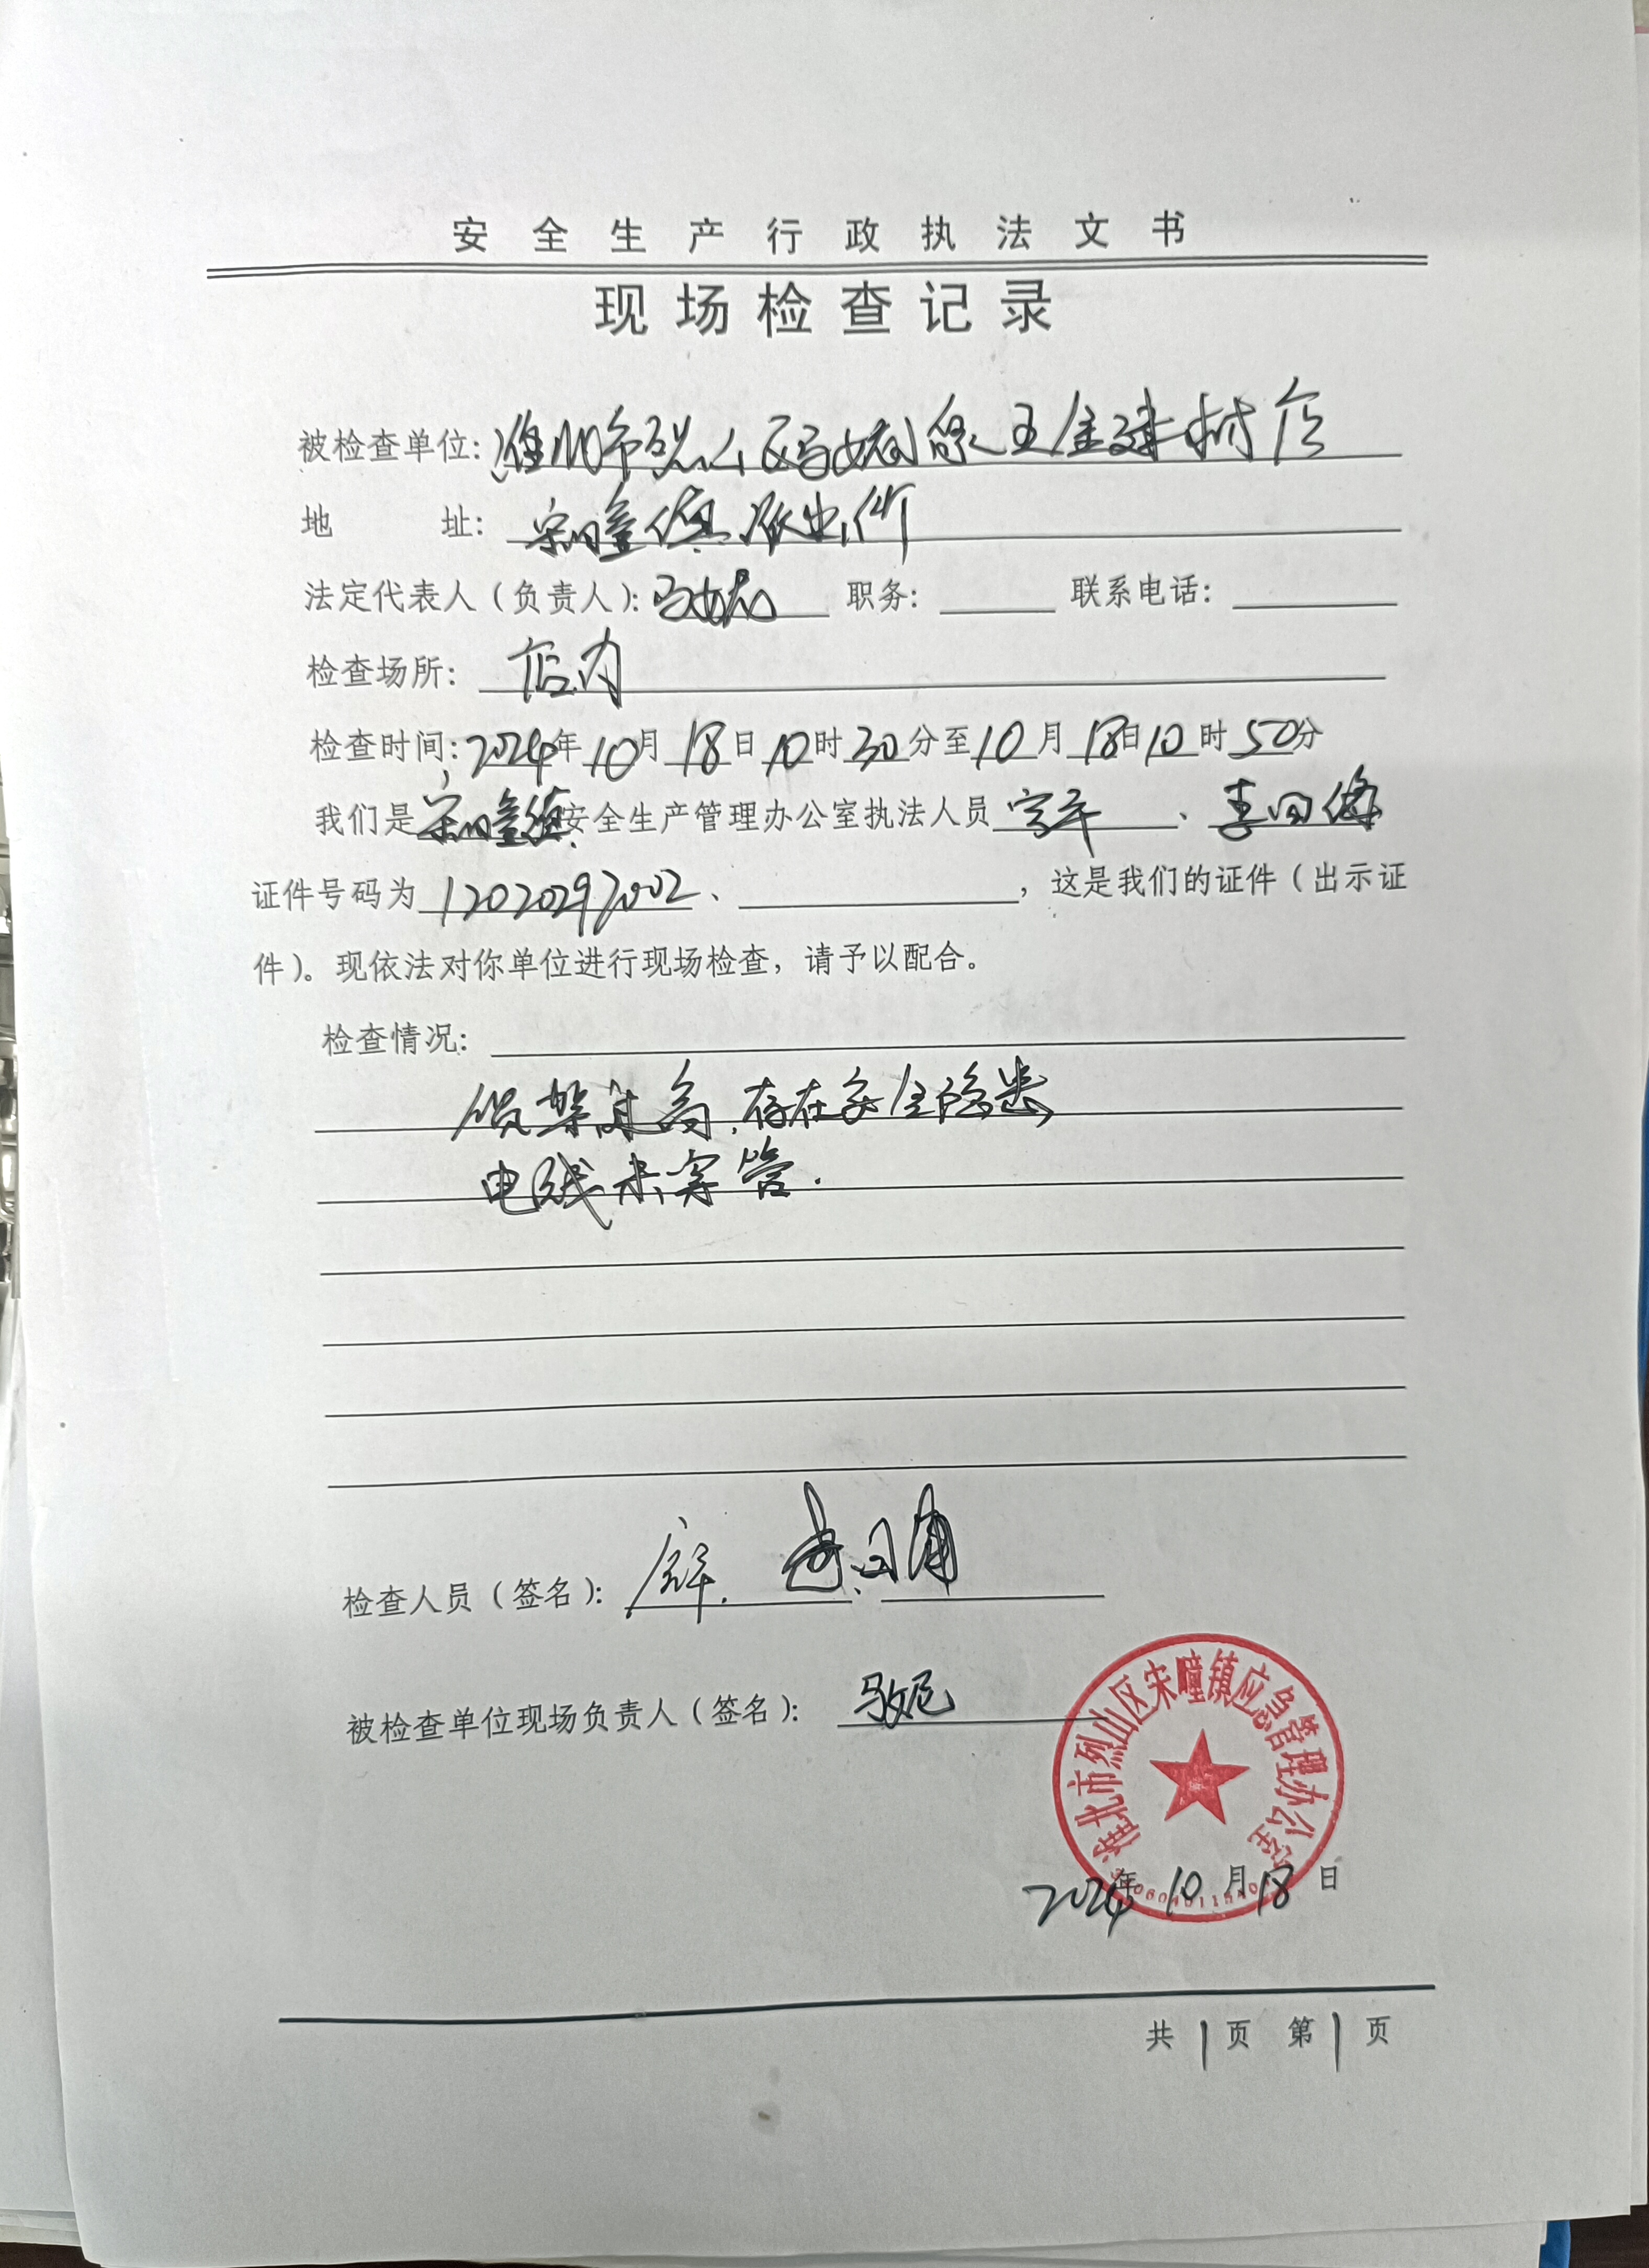 安全生产行政执法文书
现场检查记录
被检查单位：淮北市烈山区马妮家五金建材店
地　　址：宋疃镇
法定代表人（负责人）：马妮　职务：　联系电话：
检查场所：店内
检查时间：2024年10月18日10时30分至10月18日10时50分
我们是宋疃镇安全生产管理办公室执法人员　、李
证件号码为12020297002、　，这是我们的证件（出示证
件）。现依法对你单位进行现场检查，请予以配合。
检查情况：
货架过高，存在安全隐患
电线未穿管.
检查人员（签名）：
被检查单位现场负责人（签名）：马妮
淮北市烈山区宋疃镇应急管理办公室
2024年10月18日
共1页 第1页